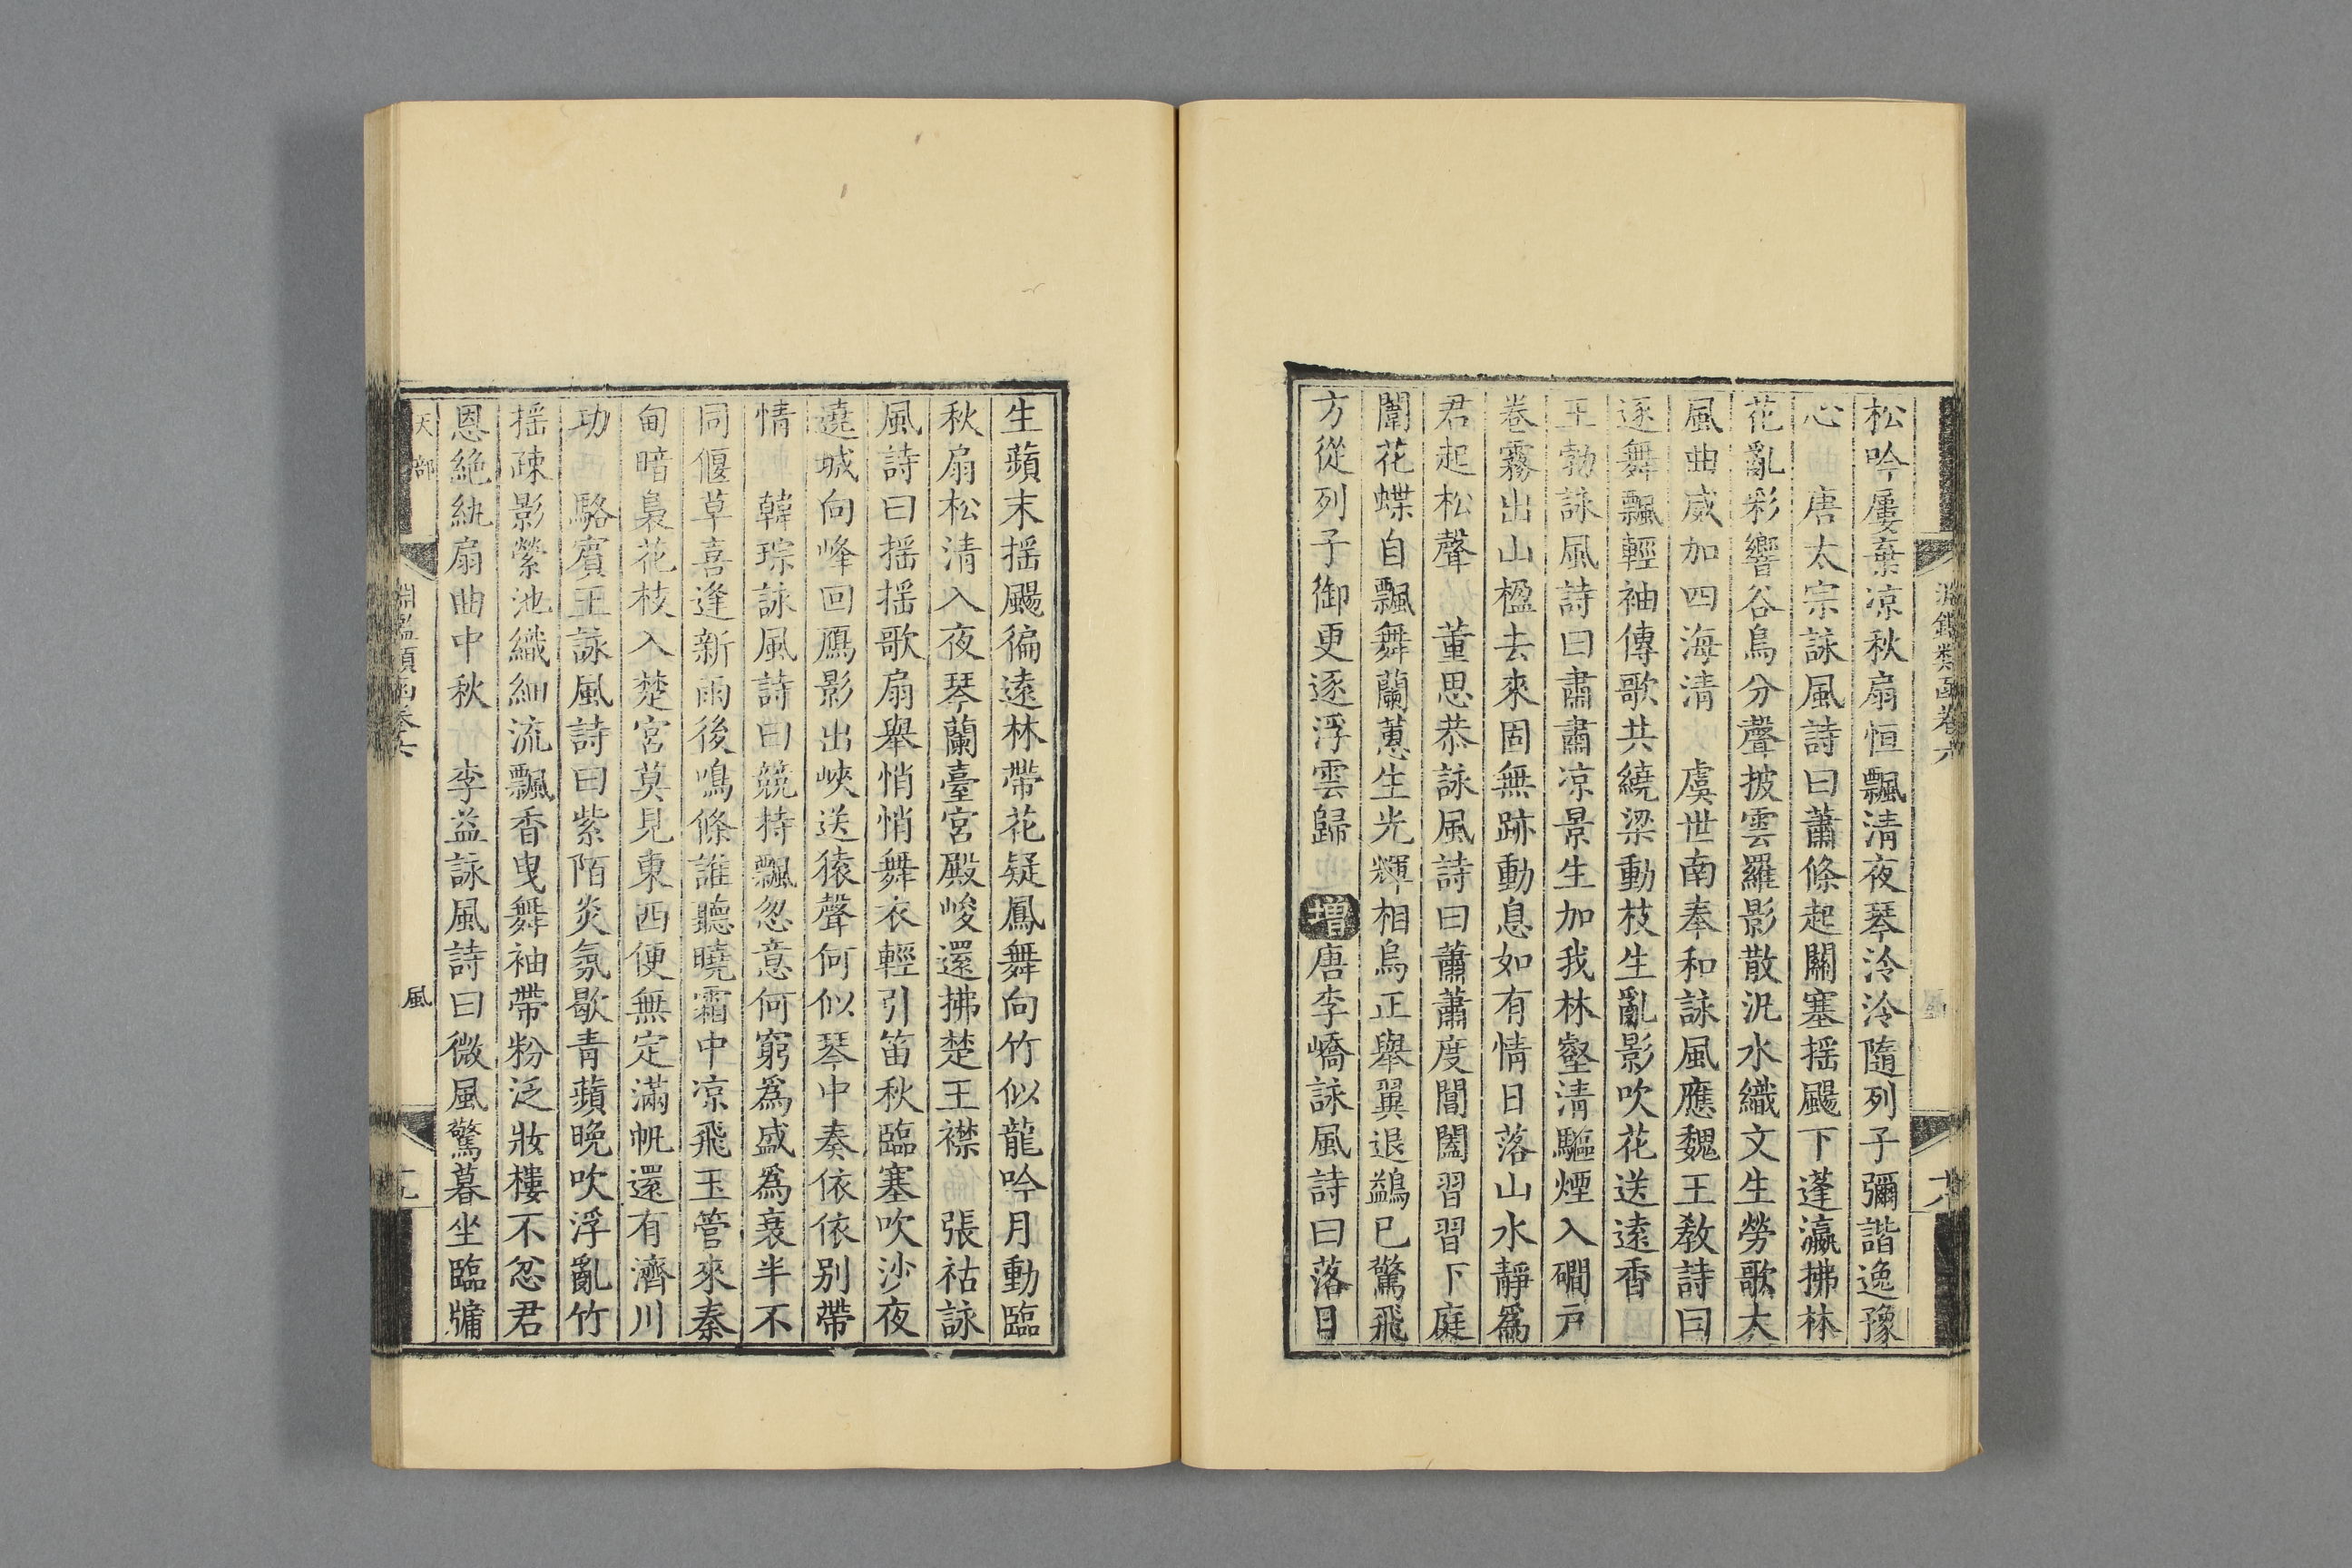 淵鑑類函卷六
松吟屢棄凉秋扇恒飄清夜琴泠泠隨列子彌諧逸豫
心　唐太宗詠風詩曰蕭條起關塞揺颺下蓬瀛拂林
花亂彩響谷鳥分聲披雲羅影散況水織文生勞歌大
風曲威加四海清　虞世南奉和詠風應魏王教詩曰
逐舞飄輕袖傳歌共繞梁動枝生亂影吹花送逺香
王勃詠風詩曰肅肅凉景生加我林壑清驅煙入磵戸
卷霧出山楹去來固無跡動息如有情日落山水靜爲
君起松聲　董思恭詠風詩曰蕭蕭度閶闔習習下庭
闈花蝶自飄舞蘭蕙生光輝相烏正舉翼退鷁已驚飛
方從列子御更逐浮雲歸　增唐李嶠詠風詩曰落日
生蘋末揺颺徧逺林帶花疑鳳舞向竹似龍吟月動臨
秋扇松清入夜琴蘭臺宮殿峻還拂楚王襟　張祜詠
風詩曰揺揺歌扇舉悄悄舞衣輕引笛秋臨塞吹沙夜
遶城向峰回鴈影出峽送猿聲何似琴中奏依依别帶
情　韓琮詠風詩曰競持飄忽意何窮爲盛爲衰半不
同偃草喜逢新雨後鳴條誰聽曉霜中凉飛玉管來秦
甸暗裊花枝入楚宮莫見東西便無定滿帆還有濟川
功　駱賓王詠風詩曰紫陌炎氛歇青蘋晚吹浮亂竹
揺疎影縈池織細流飄香曳舞袖帶粉泛妝樓不忿君
恩絶紈扇曲中秋　李益詠風詩曰微風驚暮坐臨牖
天部
淵鑑類函卷六
風